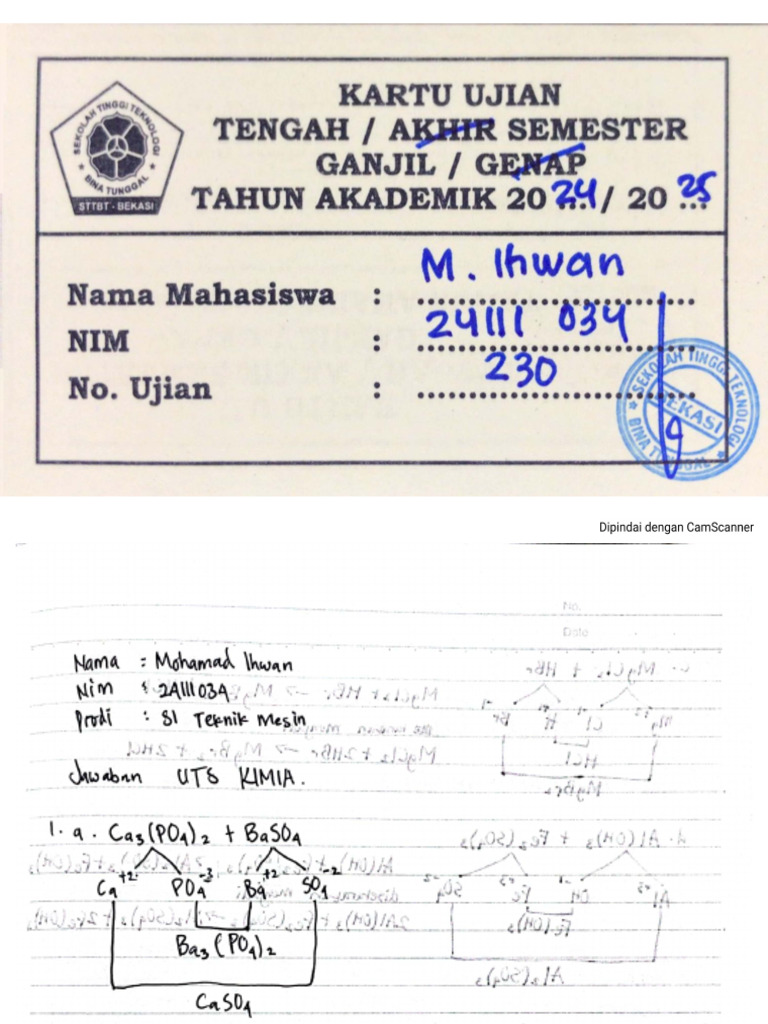 KARTU UJIAN
TENGAH / AKHIR SEMESTER
GANJIL / GENAP
TAHUN AKADEMIK 2024 / 2025
SEKOLAH TINGGI TEKNOLOGI
BINA TUNGGAL
STTBT - BEKASI
Nama Mahasiswa : M. Ihwan
NIM : 24111 034
No. Ujian : 230
SEKOLAH TINGGI TEKNOLOGI
BEKASI
BINA TUNGGAL
Dipindai dengan CamScanner
No.
Date
Nama : Mohamad Ihwan
Nim : 24111034
Prodi : S1 Teknik Mesin
Jawaban UTS KIMIA.
1. a. Ca₃(PO₄)₂ + BaSO₄
Ca⁺² PO₄⁻³ Ba⁺² SO₄⁻²
Ba₃(PO₄)₂
CaSO₄